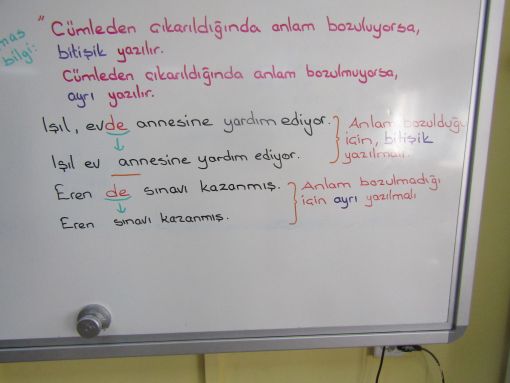 " Cümleden çıkarıldığında anlam bozuluyorsa,
bilgi: bitişik yazılır.
Cümleden çıkarıldığında anlam bozulmuyorsa,
ayrı yazılır.
Işıl, evde annesine yardım ediyor. Anlam bozulduğu
için, bitişik
Işıl ev annesine yardım ediyor. yazılmalı.
Eren de sınavı kazanmış. Anlam bozulmadığı
için ayrı yazılmalı
Eren sınavı kazanmış.